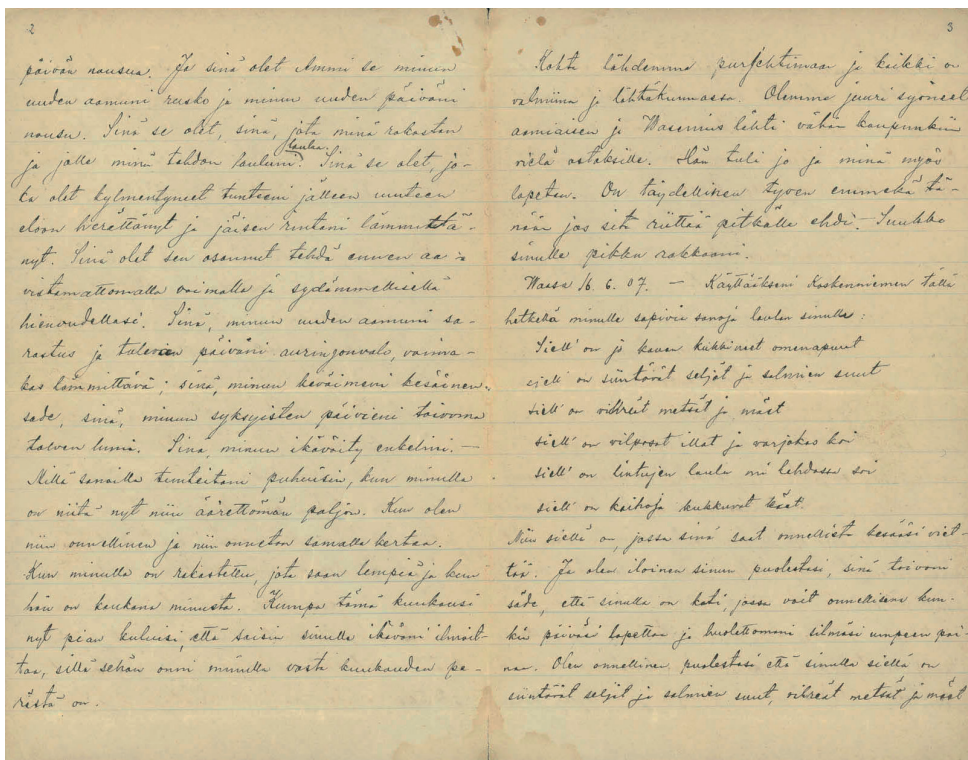 2
päivän nousua. Ja sinä olet Ammi se minun
uuden aamuni rusko ja minun uuden päiväni
nousu. Sinä se olet, sinä, jota minä rakastan
ja jolle minä tahdon lauluni laulaa. Sinä se olet, jo-
ka olet kylmentyneet tunteeni jälleen uuteen
eloon herättänyt ja jäisen rintani lämmittä-
nyt. Sinä olet sen osannut tehdä ennen aa-
vistamattomalla voimalla ja sydämmellisellä
hienoudellasi. Sinä, minun uuden aamuni sa-
rastus ja talvien päiväni auringonvalo, voima-
kas lämmittävä; sinä, minun keväimeni kesäinen
sade, sinä, minun syksyisten päivieni toivoma
talven lumi. Sinä, minun ikävöity enkelini. —
Millä sanoilla tunteitani puhuisin, kun minulla
on niitä nyt niin äärettömän paljon. Kun olen
niin onnellinen ja niin onneton samalla kertaa.
Kun minulla on rakastettu, jota saan lempiä ja kun
hän on kaukana minusta. Kumpa tämä kuukausi
nyt pian kuluisi, että saisin sinulle ikäväni ilmoit-
taa, sillä sehän onni minulla vasta kuukauden pe-
rästä on.
3
Kohta lähdemme purjehtimaan ja kaikki on
valmiina ja lähtökunnossa. Olemme juuri syöneet
aamiaisen ja Wasenius lähti vähän kaupunkiin
vielä ostoksille. Hän tuli jo ja minä myös
lopetan. On täydellinen tyven emmekä tä-
nään jos sitä riittää pitkälle ehdi. — Suukko
sinulle pikku rakkaani.
Waasa 16. 6. 07. — Käyttääkseni Koskenniemen tällä
hetkellä minulle sopivia sanoja laulan sinulle:
Siell' on jo kauan kukkineet omenapuut
siell' on siintävät seljät ja salmien suut
siell' on vihreät metsät ja mäet
siell' on vilposat illat ja varjokas koi
siell' on lintujen laulu mi lehdossa soi
siell' on kaihoja kukkuvat käet.
Niin siellä on, jossa sinä saat onnellista kesääsi viet-
tää. Ja olen iloinen sinun puolestasi, sinä toivoni
säde, että sinulla on koti, jossa voit onnellisena kun-
kin päiväsi lopettaa ja huolettomani silmäsi umpeen pai-
naa. Olen onnellinen puolestasi että sinulla siellä on
siintävät seljät ja salmien suut, vihreät metsät ja mäet